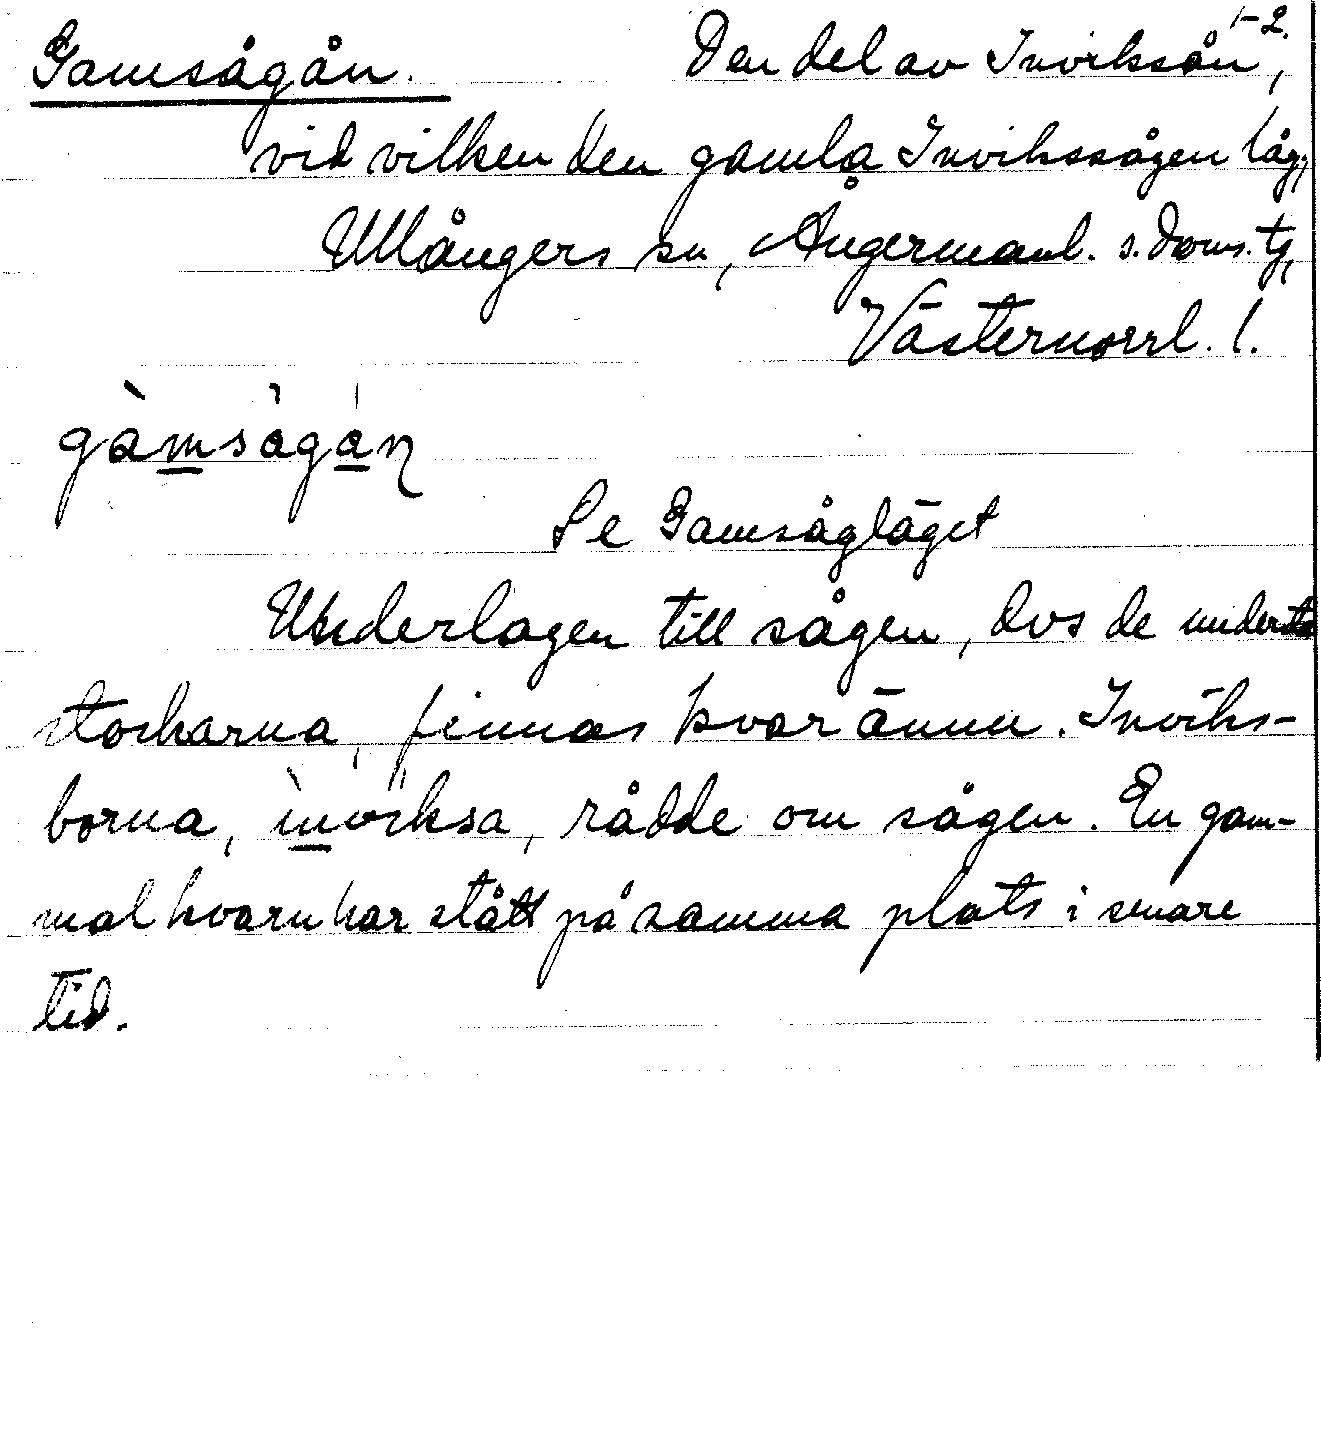 Gamsågån. Den del av Inviksån 1-2,
vid vilken den gamla Invikssågen låg,
Ullångers sn, Ångermanl. s. doms. tg,
Västernorrl. l.
gàmsågán
Se Gamsågläget
Underlagen till sågen, dvs de understa
stockarna, finnas kvar ännu. Inviks-
borna, ìnviksa, rådde om sågen. En gam-
mal kvarn har stått på samma plats i senare
tid.